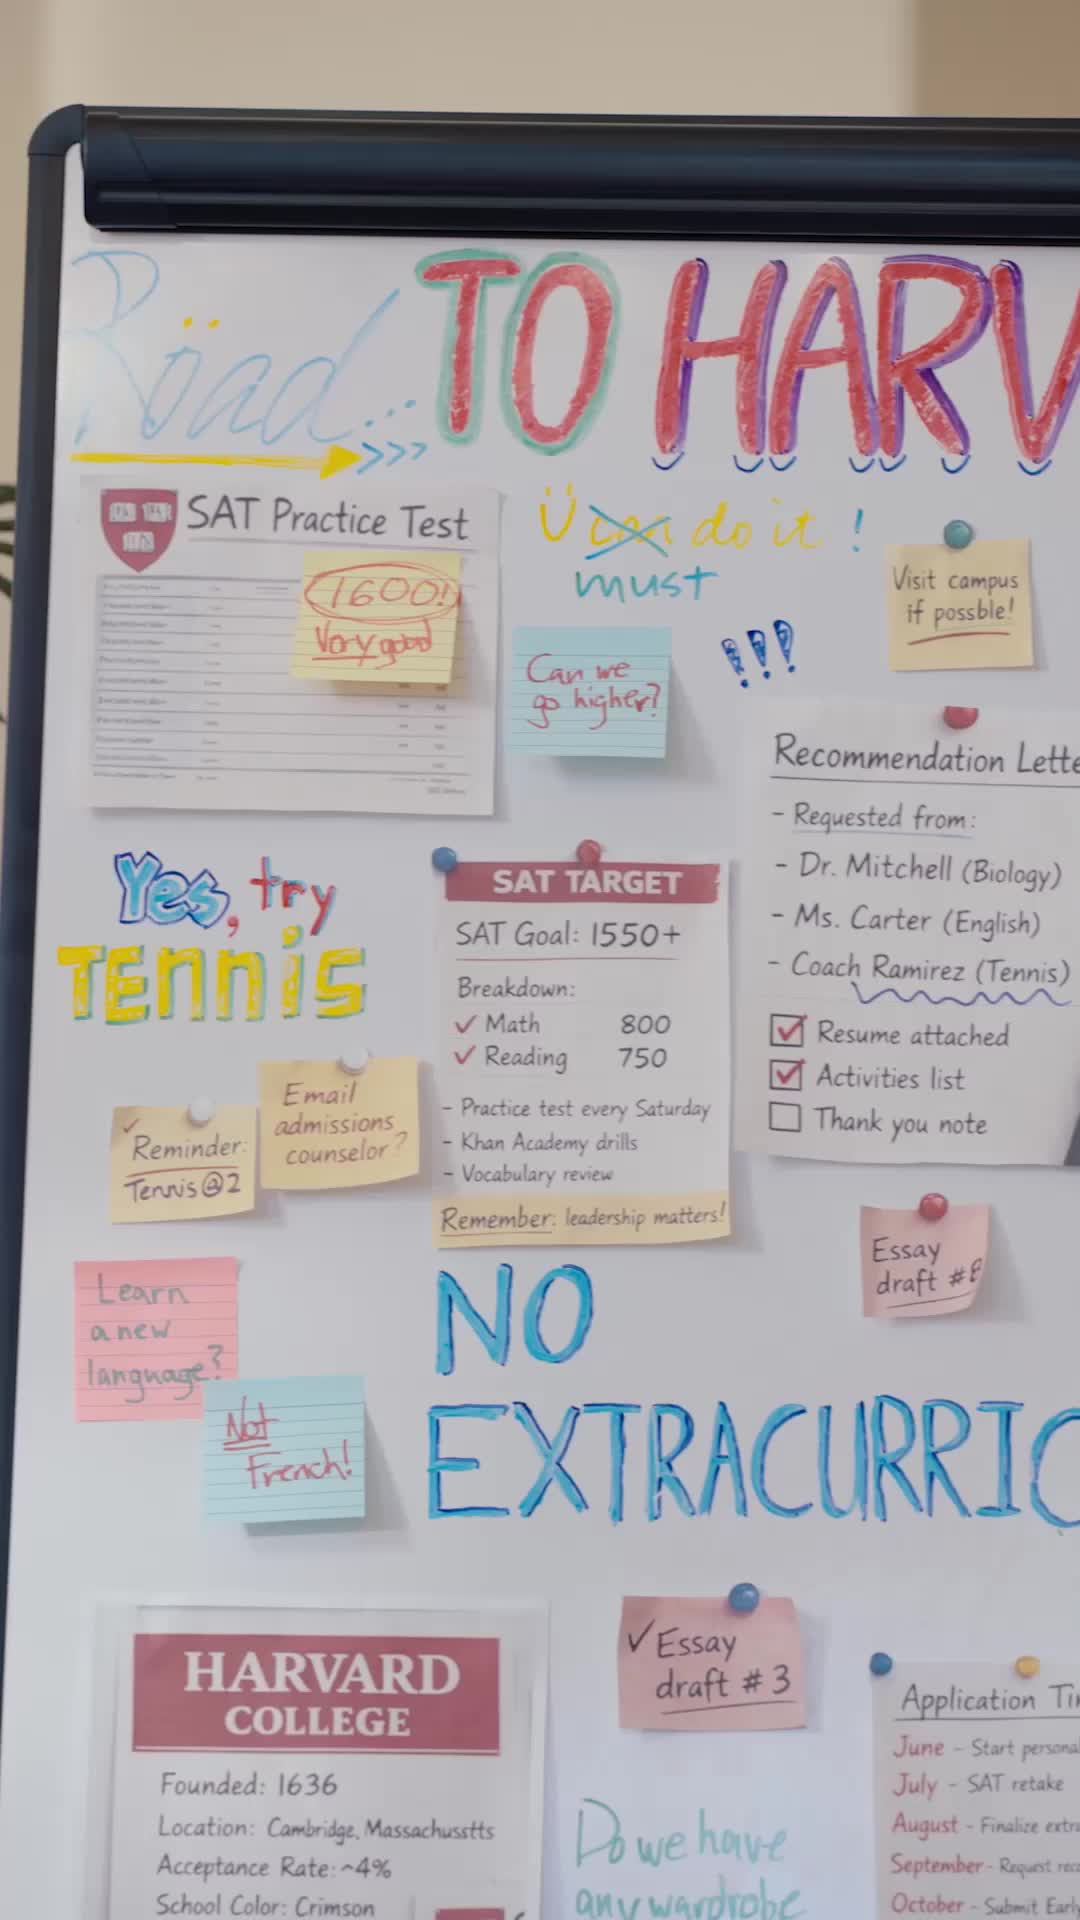 Röad... TO HARV
>>>
SAT Practice Test
1600!
Very good
Ü can do it!
must
Can we
go higher?
!!!
Visit campus
if possble!
Recommendation Lette
- Requested from:
- Dr. Mitchell (Biology)
- Ms. Carter (English)
- Coach Ramirez (Tennis)
Resume attached
Activities list
Thank you note
Yes, try
TEnnis
SAT TARGET
SAT Goal: 1550+
Breakdown:
✓ Math 800
✓ Reading 750
- Practice test every Saturday
- Khan Academy drills
- Vocabulary review
Remember: leadership matters!
✓
Reminder:
Tennis@2
Email
admissions
counselor?
Essay
draft #8
Learn
a new
language?
Not
French!
NO
EXTRACURRIC
HARVARD
COLLEGE
Founded: 1636
Location: Cambridge, Massachusstts
Acceptance Rate: ~4%
School Color: Crimson
✓ Essay
draft #3
Do we have
any wardrobe
Application Ti
June - Start persona
July - SAT retake
August - Finalize extra
September - Request rec
October - Submit Early